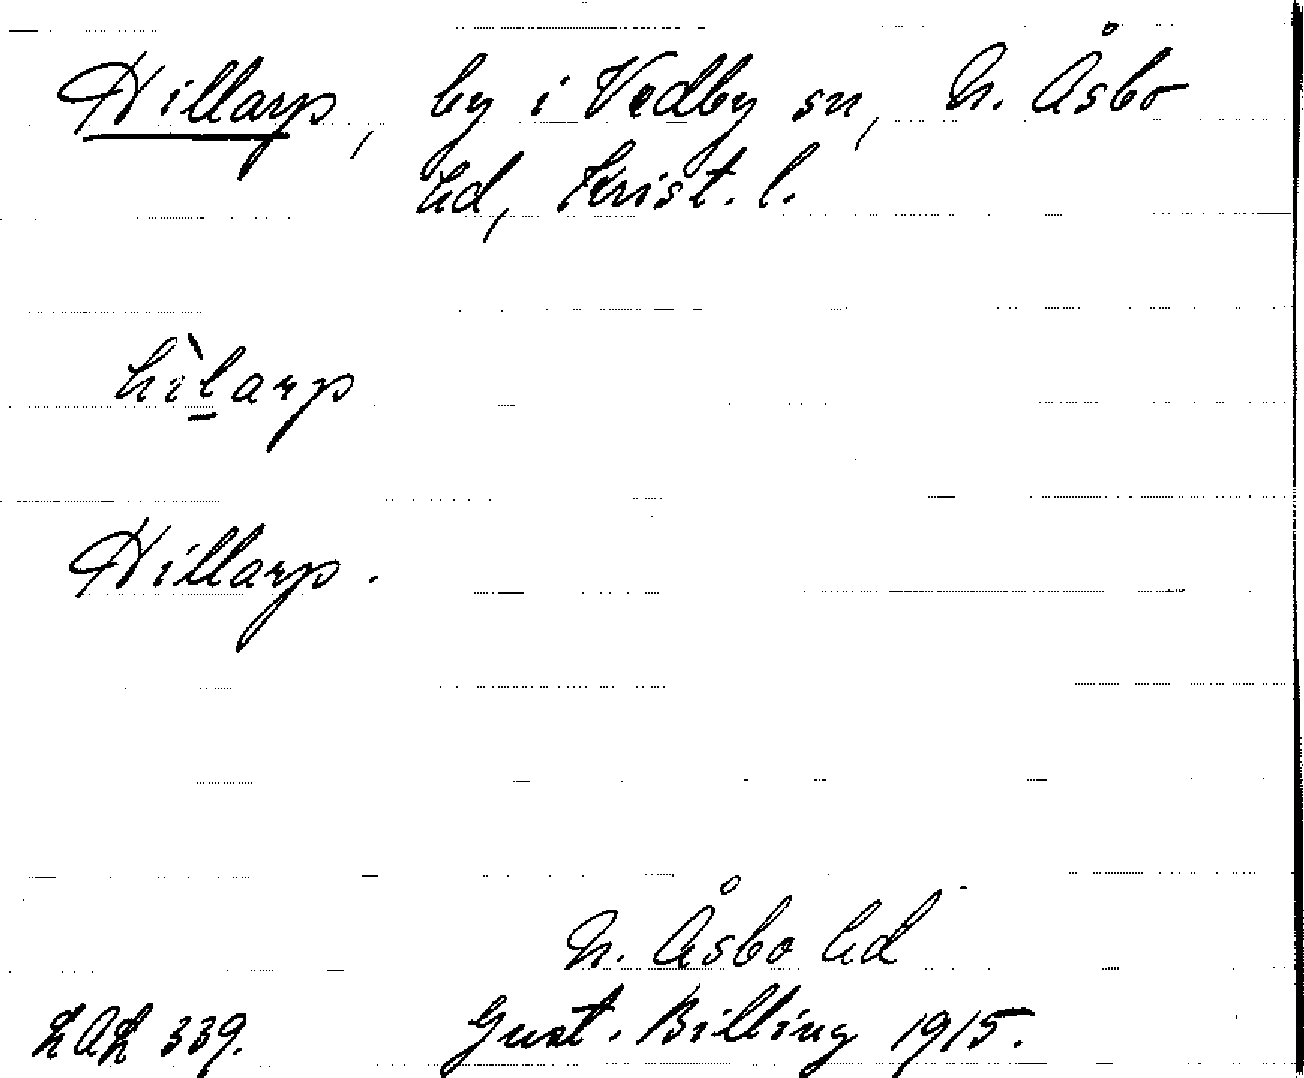 Hillarp, by i Vedby sn, N. Åsbo
hd, Krist. l.
hìl̲arp
Hillarp.
N. Åsbo hd
LAL 339. Gust. Billing 1915.